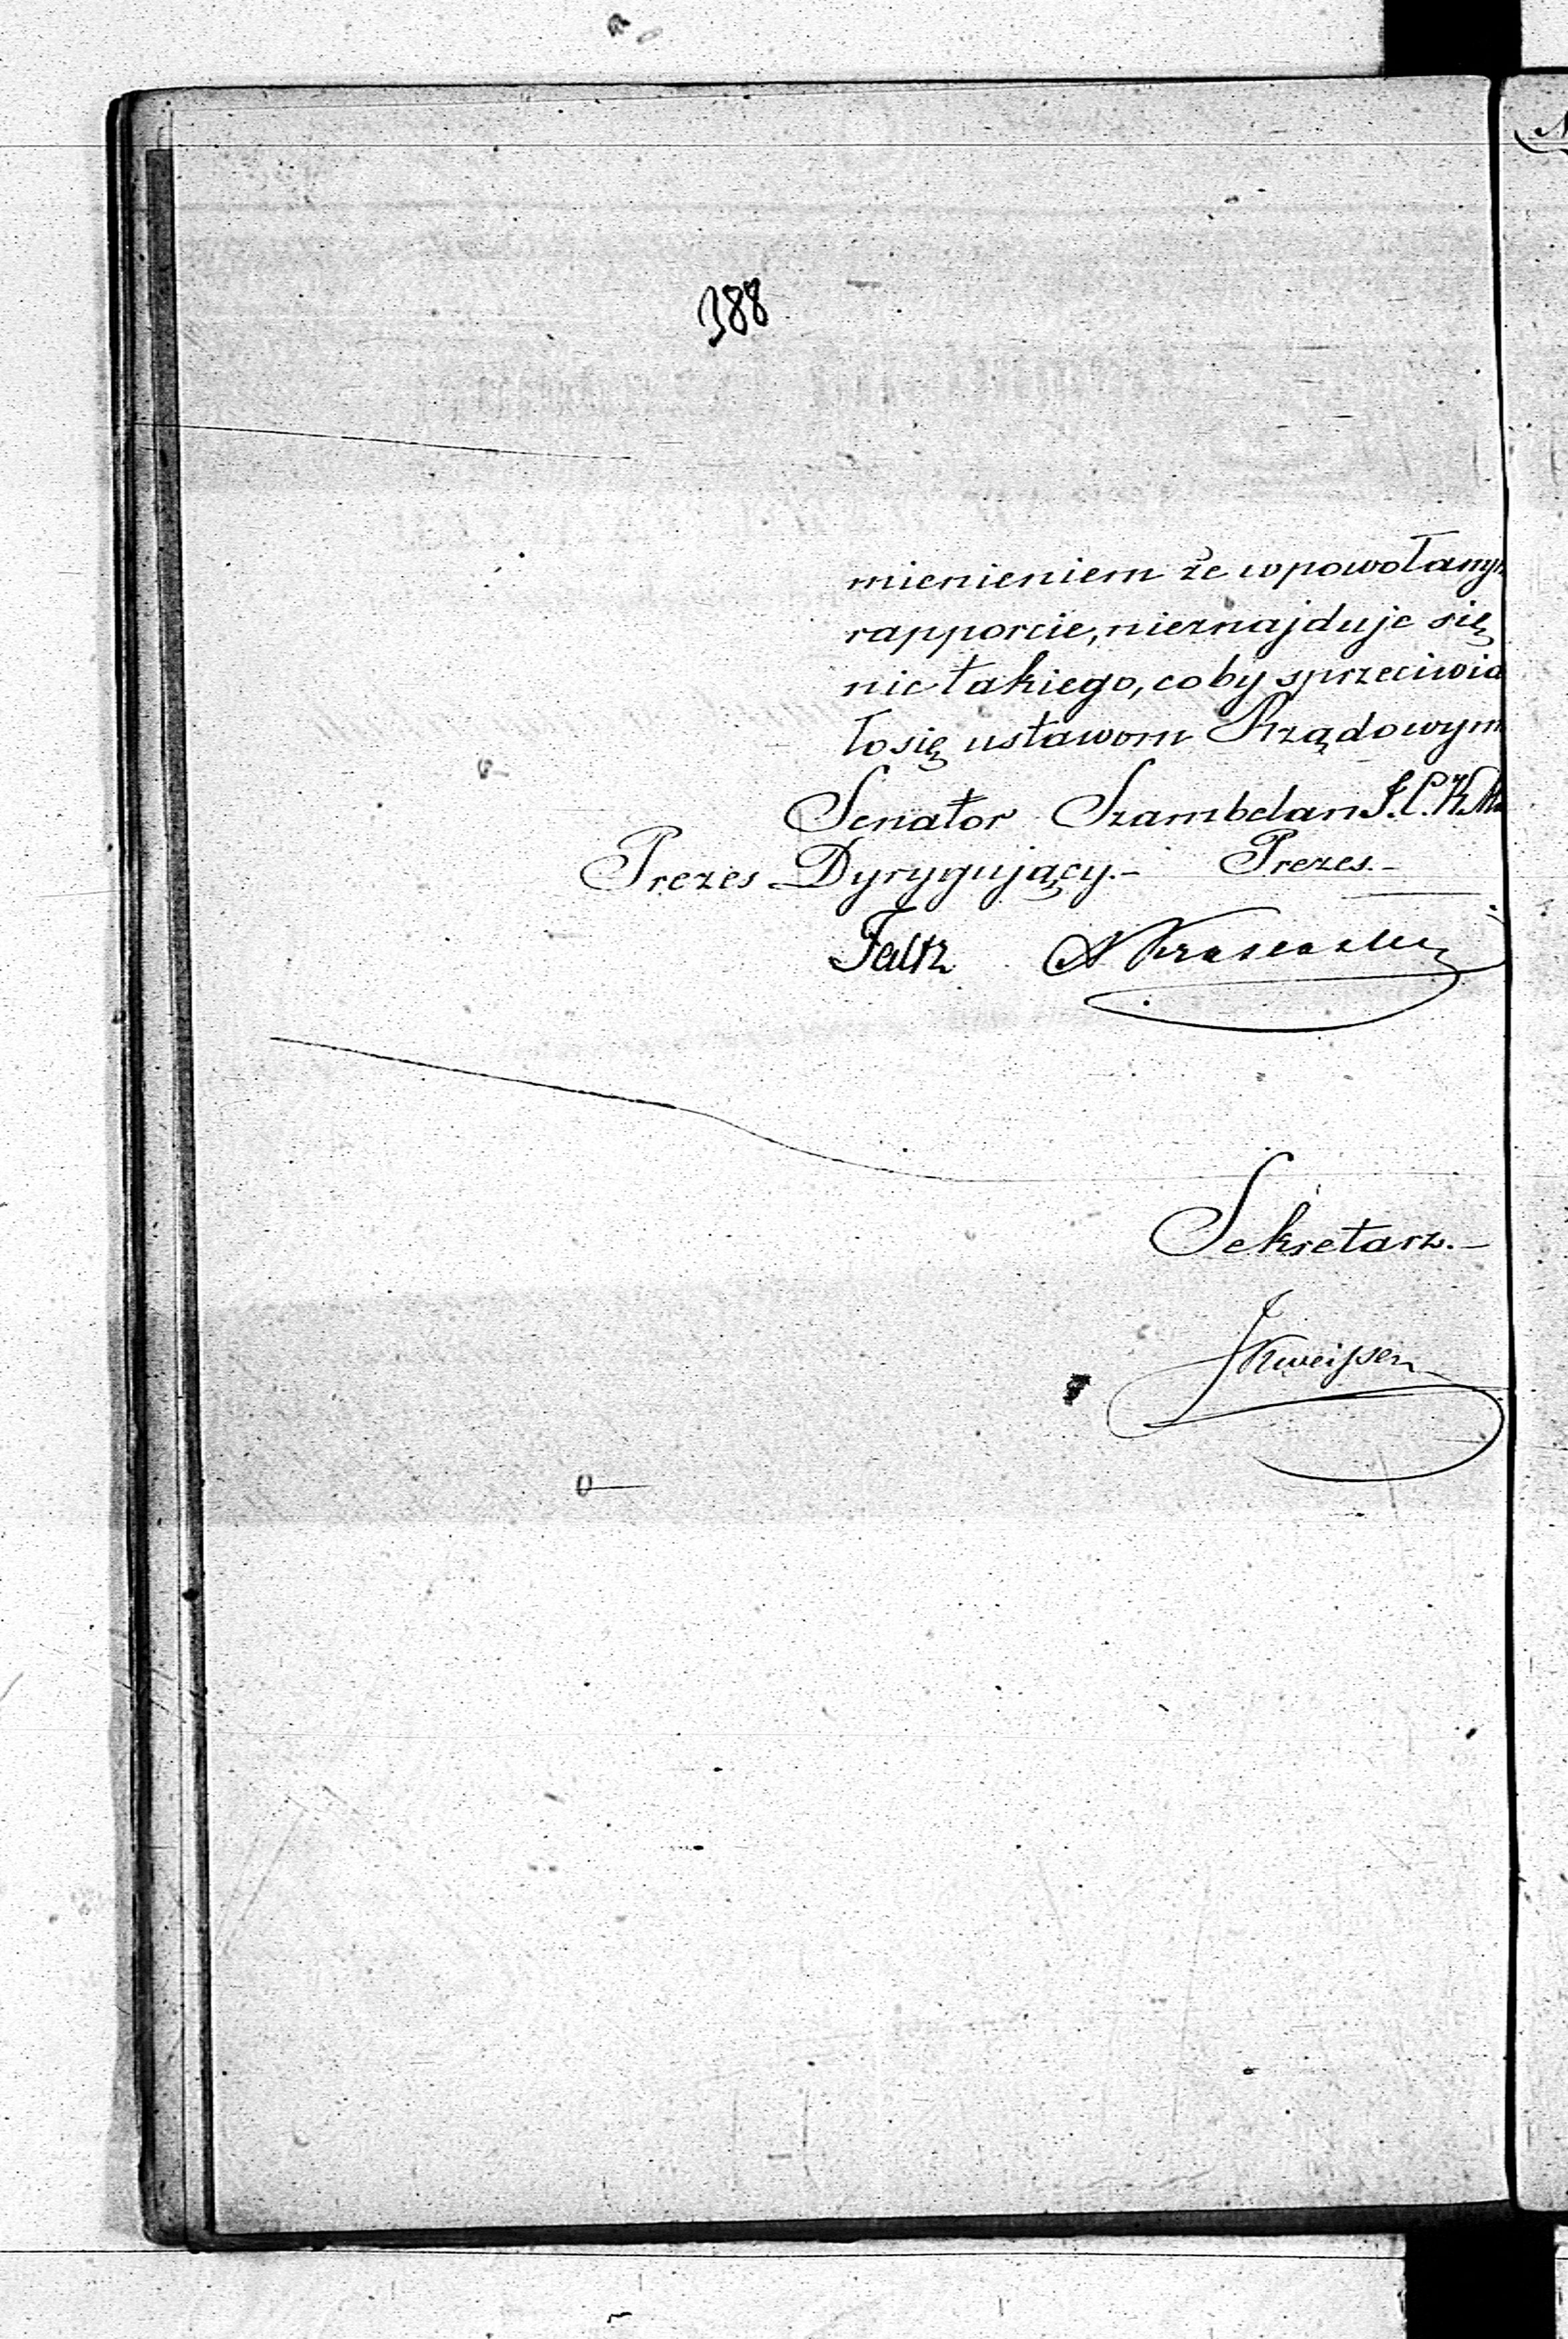 388
mienieniem że w powołanym
rapporcie, nieznajduje się
nic takiego, coby sprzeciwia
ło się ustawom Rządowym
Senator Szambelan J. C. K. M.
Prezes Dyrygujący.- Prezes.-
Faltz
Sekretarz.-